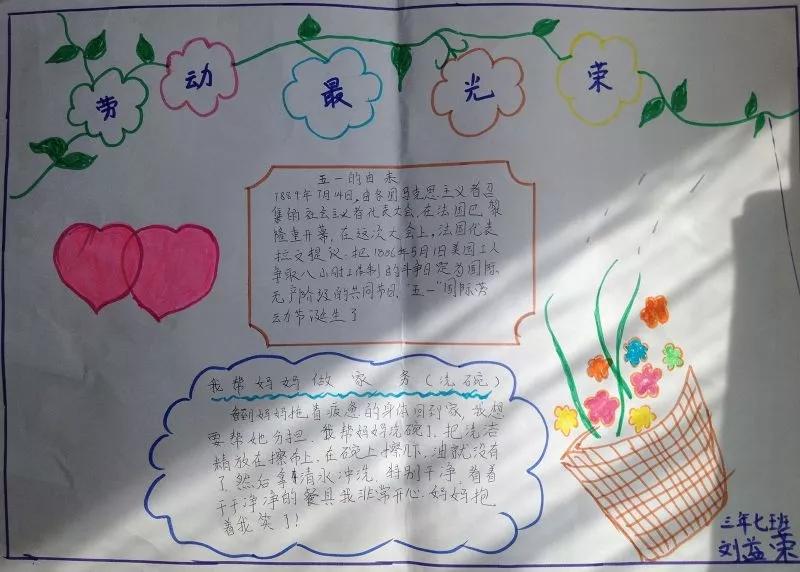 劳动最光荣
五一的由来
1889年7月14日,由各国马克思主义者召
集的社会主义者代表大会,在法国巴黎
隆重开幕,在这次大会上,法国代表
拉文提议:把1886年5月1日美国工人
争取八小时工作制的斗争日定为国际
无产阶级的共同节日,"五一"国际劳
动节诞生了
我帮妈妈做家务(洗碗)
看到妈妈拖着疲惫的身体回到家,我想
要帮她分担,我帮妈妈洗碗了,把洗洁
精放在擦布上,在碗上擦下,油就没有
了,然后拿清水冲洗,特别干净,看着
干干净净的餐具我非常开心,妈妈抱
着我笑了!
三年七班
刘益荣